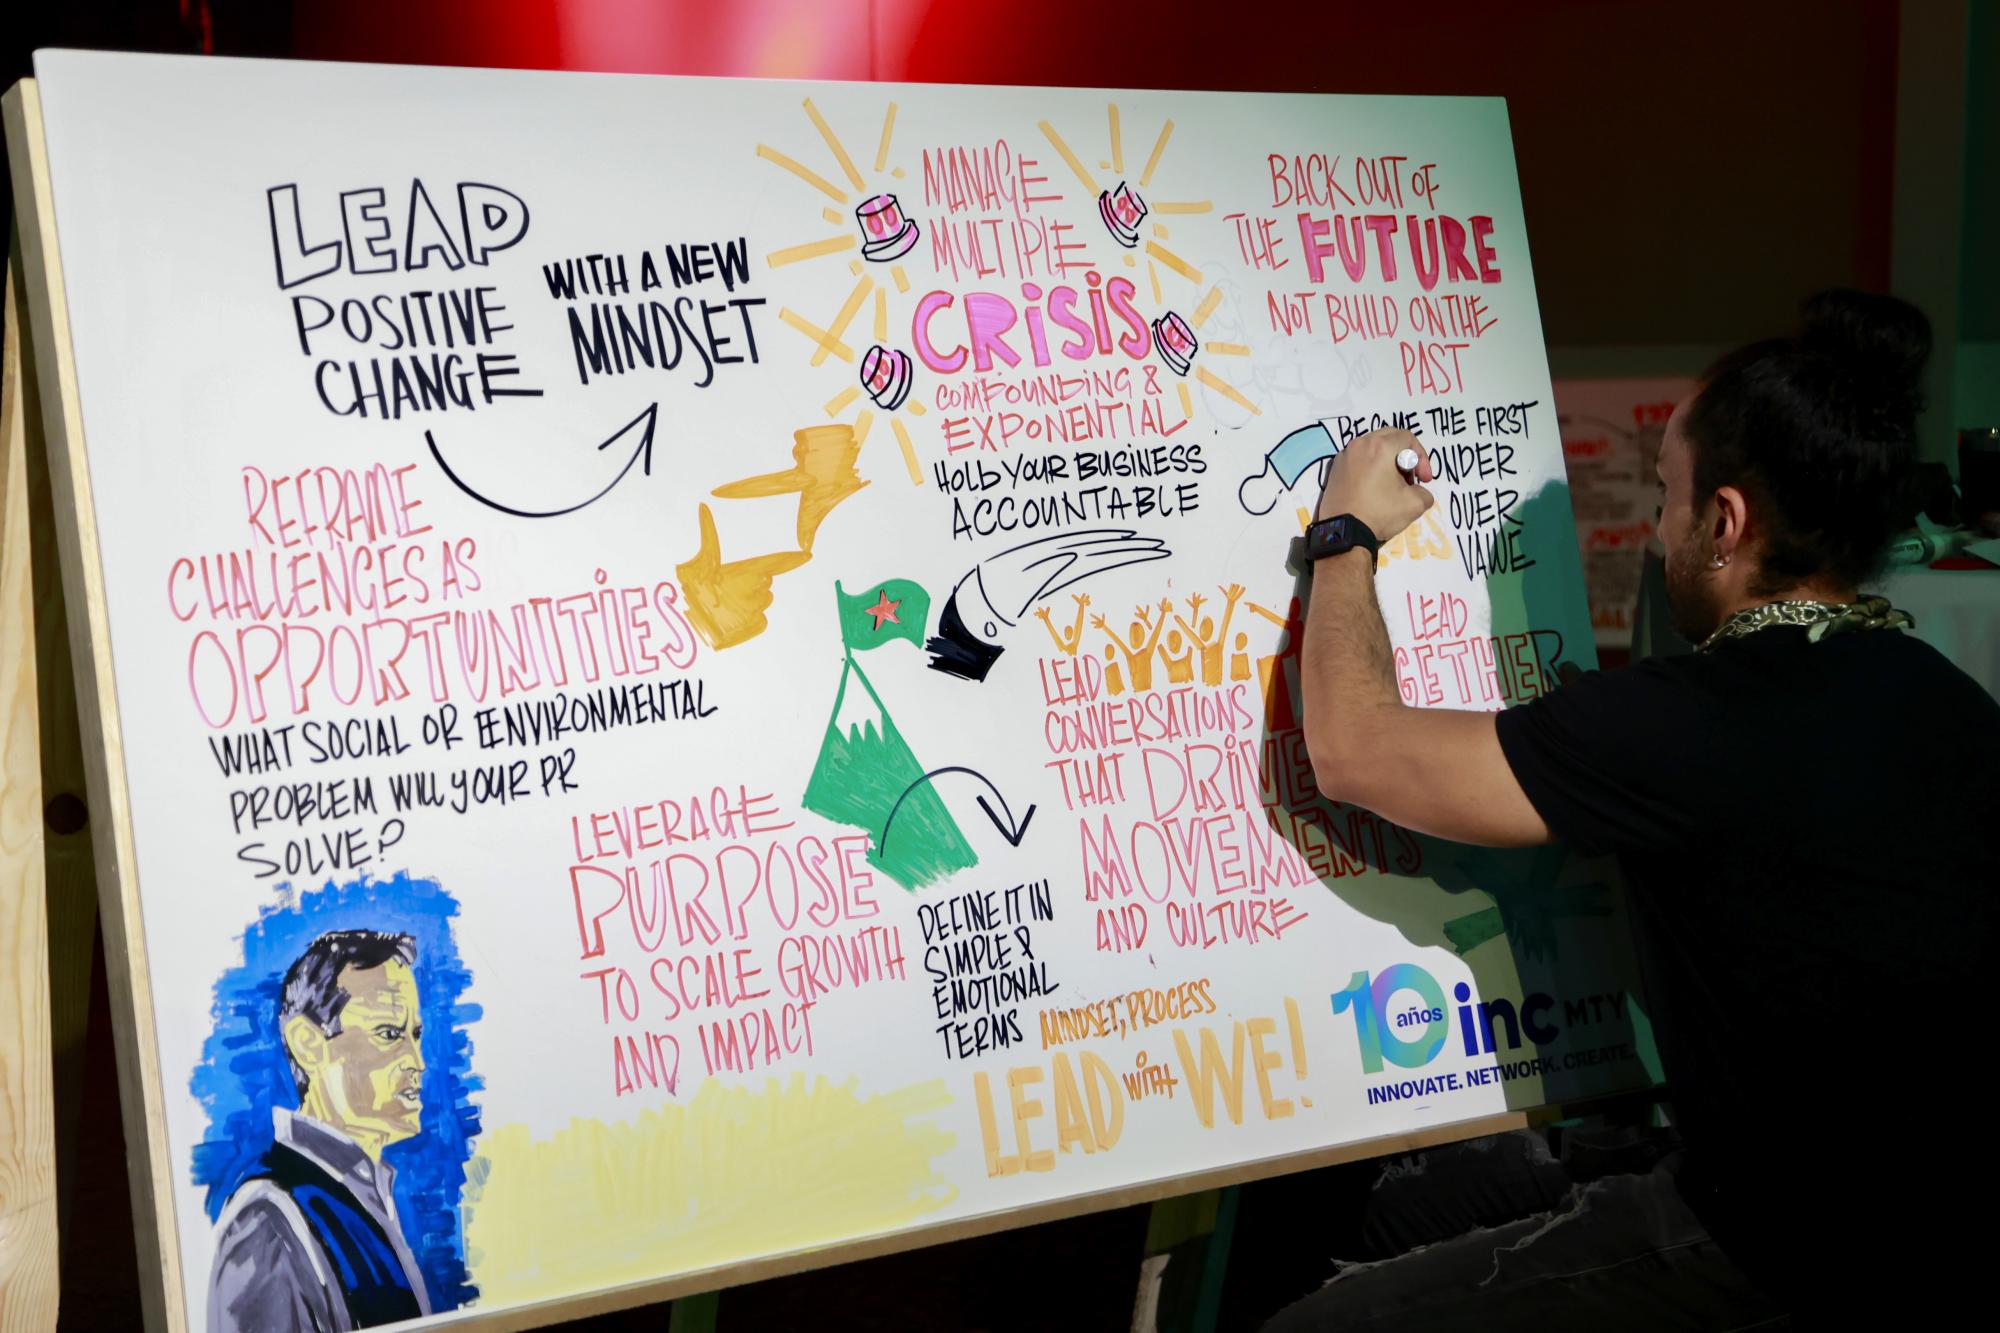 LEAD
POSITIVE
CHANGE
WITH A NEW
MINDSET
REFRAME
CHALLENGES AS
OPPORTUNITIES
WHAT SOCIAL OR ENVIRONMENTAL
PROBLEM WILL YOUR PR
SOLVE?
MANAGE
MULTIPLE
CRISIS
COMPOUNDING &
EXPONENTIAL
HOLD YOUR BUSINESS
ACCOUNTABLE
BACK OUT OF
THE FUTURE
NOT BUILD ON THE
PAST
BECOME THE FIRST
OVER
VALUE
LEVERAGE
PURPOSE
TO SCALE GROWTH
AND IMPACT
DEFINE IT IN
SIMPLE &
EMOTIONAL
TERMS
LEAD
CONVERSATIONS
THAT DRIVE
MOVEMENTS
AND CULTURE
LEAD
GETHER
MINDSET, PROCESS
LEAD WITH WE!
10 años inc MTY
INNOVATE. NETWORK. CREATE.